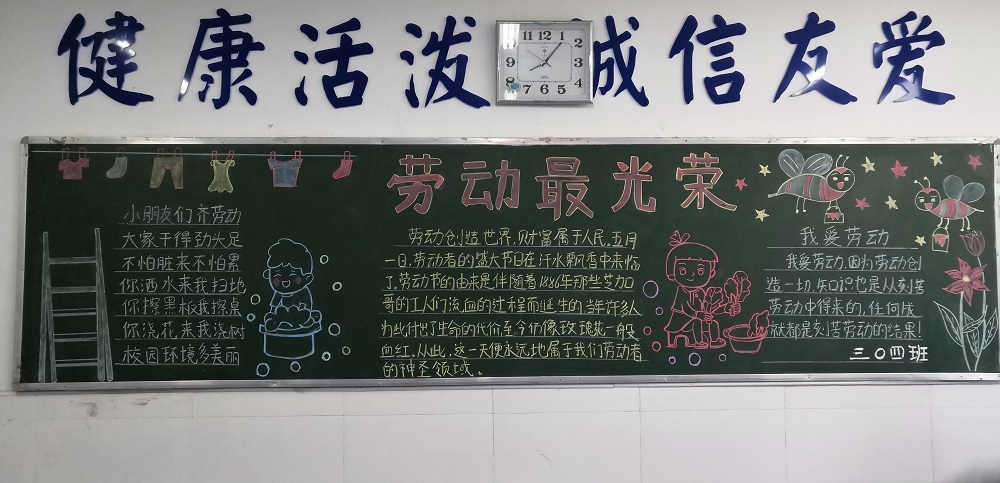 健康活泼 诚信友爱
11 12 1
10 2
9 3
8 4
7 6 5
劳动最光荣
小朋友们齐劳动
大家干得劲头足
不怕脏来不怕累
你洒水来我扫地
你擦黑板我擦桌
你浇花来我浇树
校园环境多美丽
劳动创造世界,财富属于人民,五月
一日,劳动者的盛大节日在汗水飘香中来临
了,劳动节的由来是伴随着1886年那些芝加
哥的工人们流血的过程而诞生的,当年许多人
为此付出了生命的代价,至今仍像玫瑰花一般
血红,从此,这一天便永远地属于我们劳动者
的神圣领域。
我爱劳动
我爱劳动,因为劳动创
造一切,知识也是从刻苦
劳动中得来的,任何成
就都是刻苦劳动的结果!
三〇四班